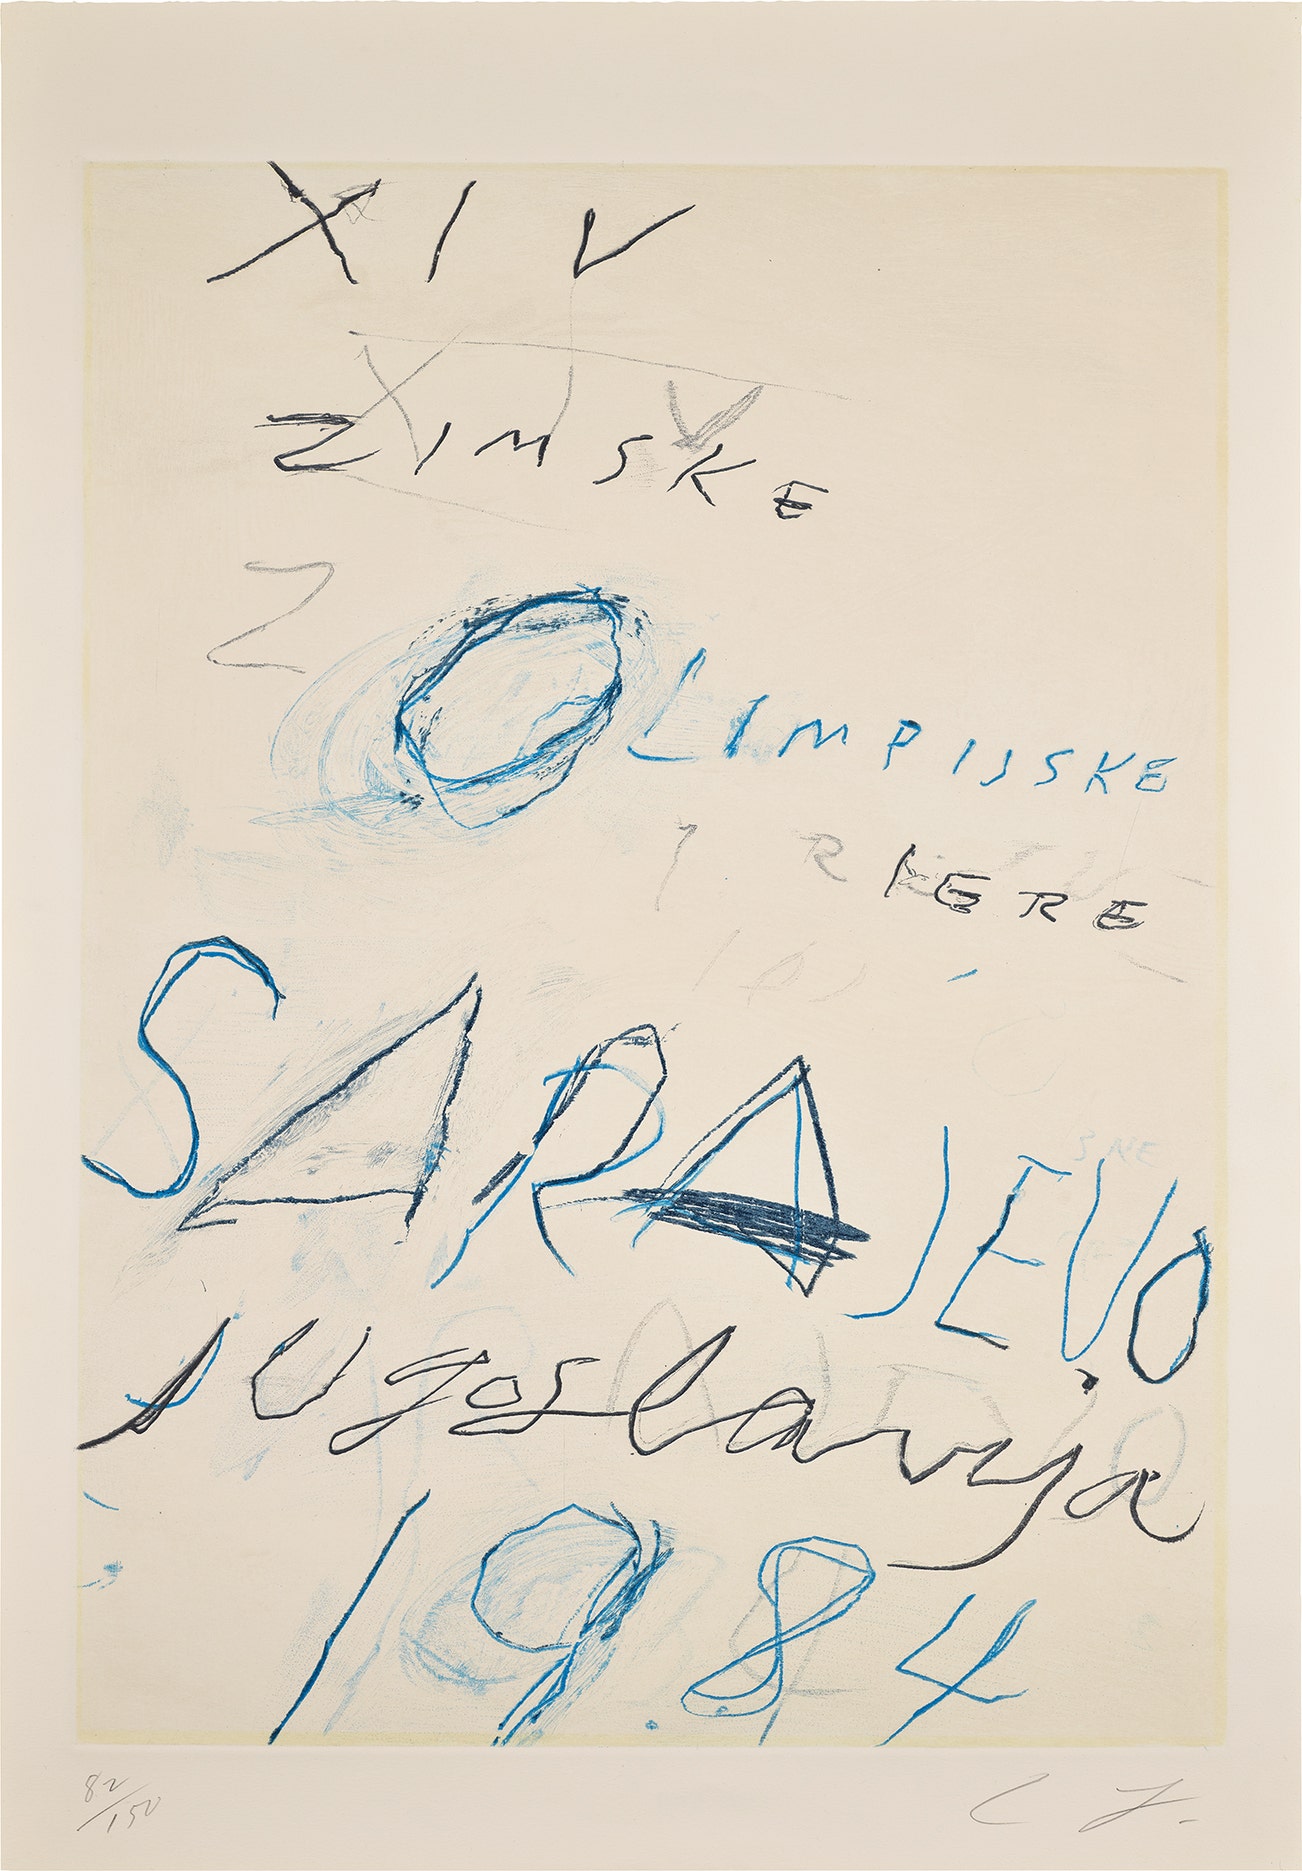 XIV
XIV
ZIMSKE
Z
OLIMPIJSKE
IGRE
SARAJEVO
Jugoslavija
1984
82/150